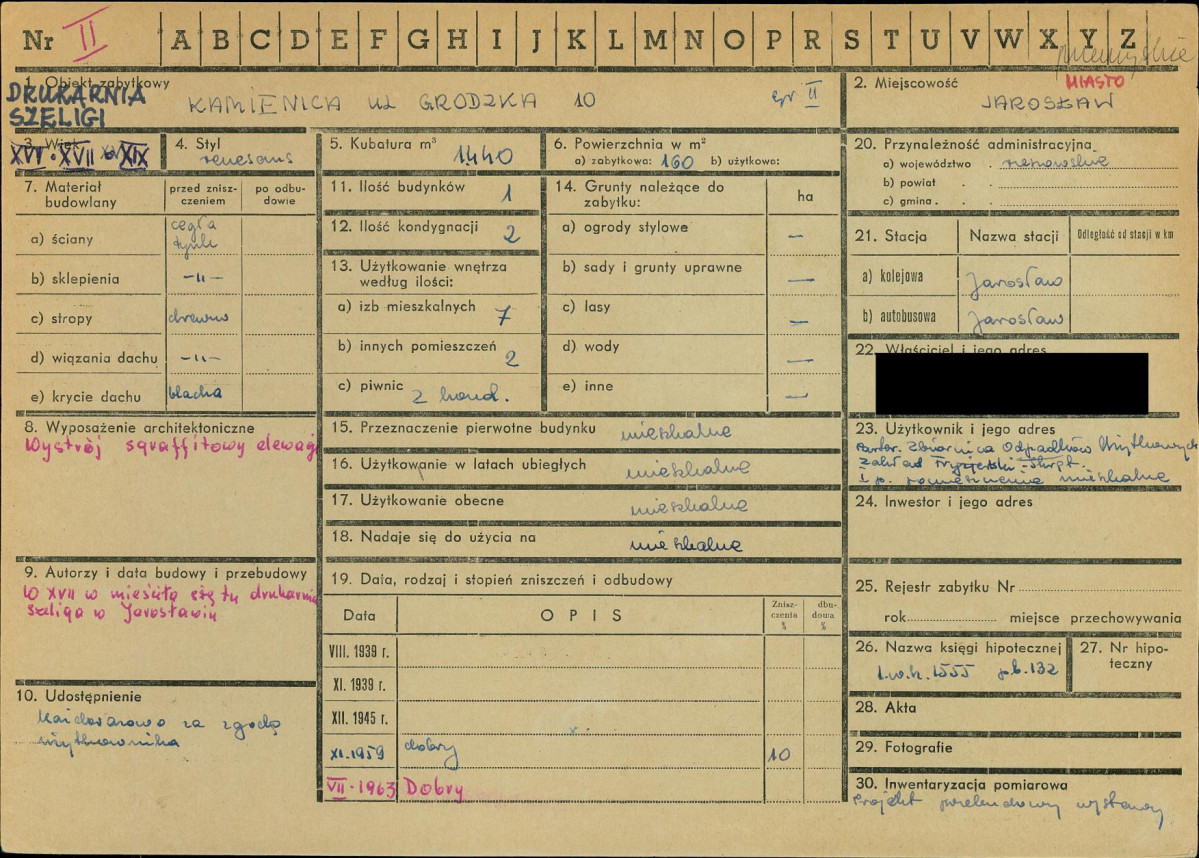 Nr II A B C D E F G H I J K L M N O P R S T U V W X Y Z
przemyskie
1. Obiekt zabytkowy
DRUKARNIA
SZELIGI
KAMIENICA ul GRODZKA 10 gr II
2. Miejscowość MIASTO
JAROSŁAW
3. Wiek
XVI · XVII XIX
4. Styl
renesans
5. Kubatura m³
1440
6. Powierzchnia w m²
a) zabytkowa: 160 b) użytkowa:
20. Przynależność administracyjna
a) województwo rzeszowskie
b) powiat
c) gmina
7. Materiał budowlany
przed zniszczeniem
po odbudowie
a) ściany cegła
tynk
b) sklepienia -"-
c) stropy drewno
d) wiązania dachu -"-
e) krycie dachu blacha
11. Ilość budynków 1
12. Ilość kondygnacji 2
13. Użytkowanie wnętrza
według ilości:
a) izb mieszkalnych 7
b) innych pomieszczeń 2
c) piwnic 2 kond.
14. Grunty należące do
zabytku:
ha
a) ogrody stylowe —
b) sady i grunty uprawne —
c) lasy —
d) wody —
e) inne —
21. Stacja Nazwa stacji Odległość od stacji w km
a) kolejowa Jarosław
b) autobusowa Jarosław
22. Właściciel i jego adres
8. Wyposażenie architektoniczne
Wystrój sgraffitowy elewacji
15. Przeznaczenie pierwotne budynku mieszkalne
16. Użytkowanie w latach ubiegłych mieszkalne
17. Użytkowanie obecne mieszkalne
18. Nadaje się do użycia na mieszkalne
23. Użytkownik i jego adres
Zbiornica Odpadków Użytkowych
Zakład Fryzjerski
I p. pomieszczenia mieszkalne
24. Inwestor i jego adres
9. Autorzy i data budowy i przebudowy
W XVII w mieściła się tu drukarnia
Szeliga w Jarosławiu
19. Data, rodzaj i stopień zniszczeń i odbudowy
Data OPIS Zniszczenia % dbudowa %
VIII. 1939 r.
XI. 1939 r.
XII. 1945 r.
XI. 1959 dobry 10
VII · 1963 Dobry
25. Rejestr zabytku Nr
rok miejsce przechowywania
26. Nazwa księgi hipotecznej
l.w.h. 1555 p.b. 132
27. Nr hipoteczny
10. Udostępnienie
Każdorazowo za zgodą
użytkownika
28. Akta
29. Fotografie
30. Inwentaryzacja pomiarowa
projekt przebudowy wystawy